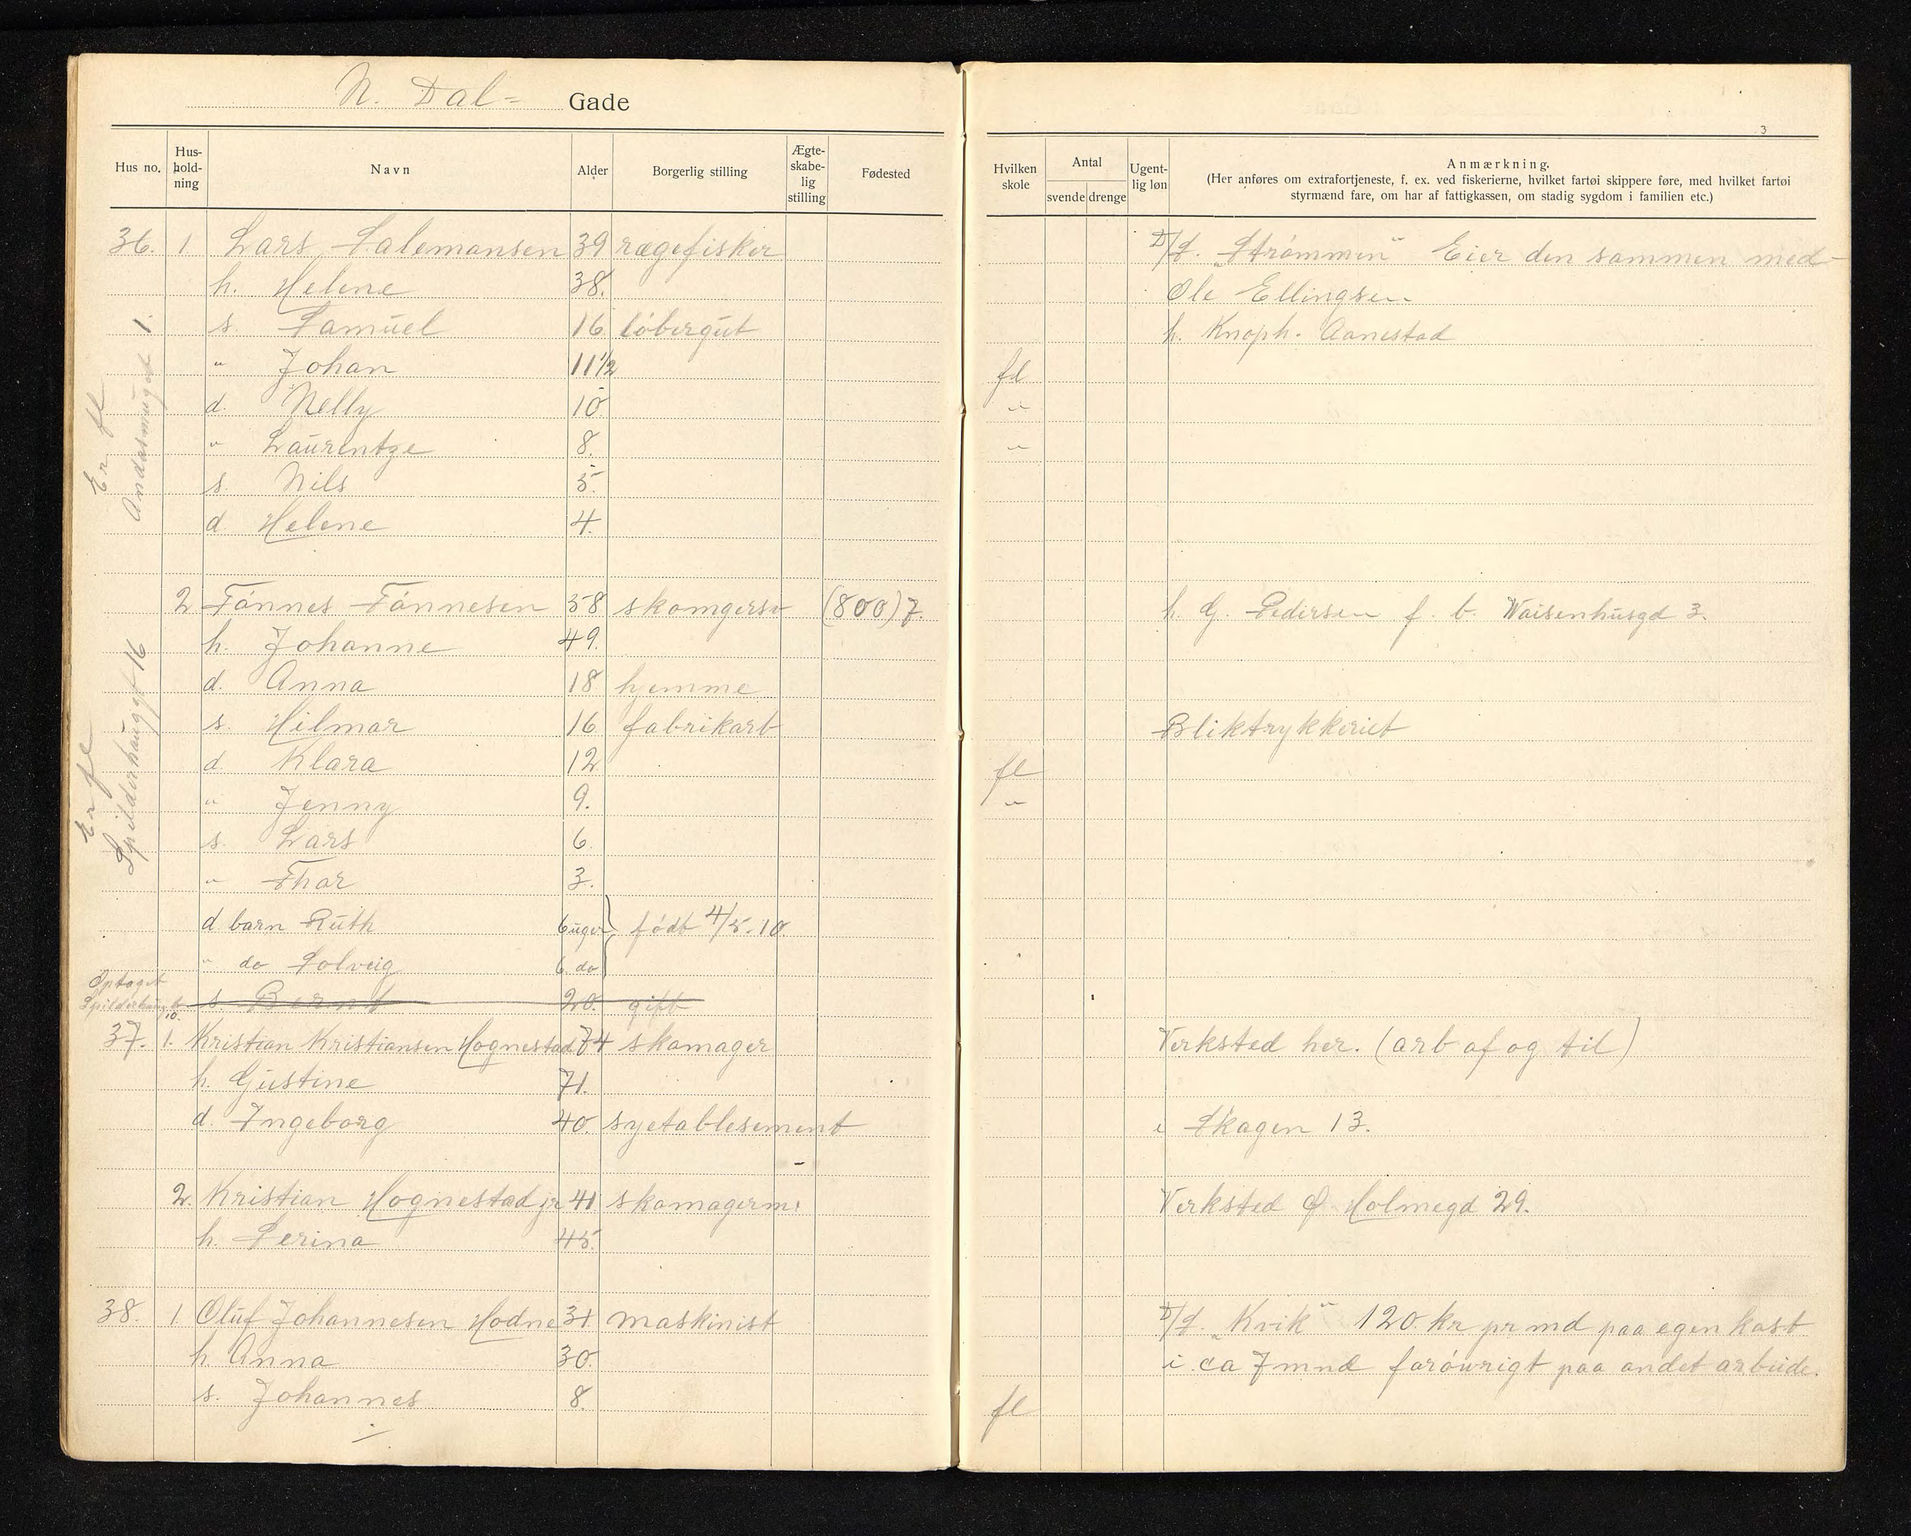 N. Dal- Gade
3
Hus no. Hus-hold-ning Navn Alder Borgerlig stilling Ægte-skabe-lig stilling Fødested Hvilken skole Antal svende drenge Ugent-lig løn Anmærkning.
(Her anføres om extrafortjeneste, f. ex. ved fiskerierne, hvilket fartøi skippere føre, med hvilket fartøi
styrmænd fare, om har af fattigkassen, om stadig sygdom i familien etc.)
36. 1 Lars Salemonsen 39 rægefisker D/S. „Strømmen" Eier den sammen med
h. Helene 38. Ole Ellingsen
s. Samuel 16 løbergut h. Knoph. Aanestad
" Johan 11 1/2 fl
d. Nelly 10 "
" Laurentze 8. "
s. Nils 5.
d. Helene 4.
Er fl
Andasmuget 1.
2 Tønnes Tønnesen 58 skomgersv (800) 7. h. G. Pedersen f. b. Waisenhusgd 3.
h. Johanne 49.
d. Anna 18 hjemme
s. Hilmar 16 fabrikarb Bliktrykkeriet
d. Klara 12 fl
" Jenny 9. "
s. Lars 6.
" Thor 3.
d barn Ruth 6 uger } født 4/5.10
" do Solveig 6 do
Er fl
Spilderhauggt 16
Optaget
Spilderhaug
10.
s. Bernt 20. gift
37. 1. Kristian Kristiansen Hognestad 74 skomager Verksted her. (arb af og til)
h. Gustine 71.
d. Ingeborg 40. syetablesement i Skagen 13.
2. Kristian Hognestad jr 41 skomagerm. Verksted Ø Holmegd 29.
h. Serina 45.
38. 1 Oluf Johannesen Hodne 31 maskinist D/S. „Kvik" 120. kr pr md paa egen kost
h Anna 30. i ca 7 mnd forøwrigt paa andet arbeide.
s. Johannes 8. fl